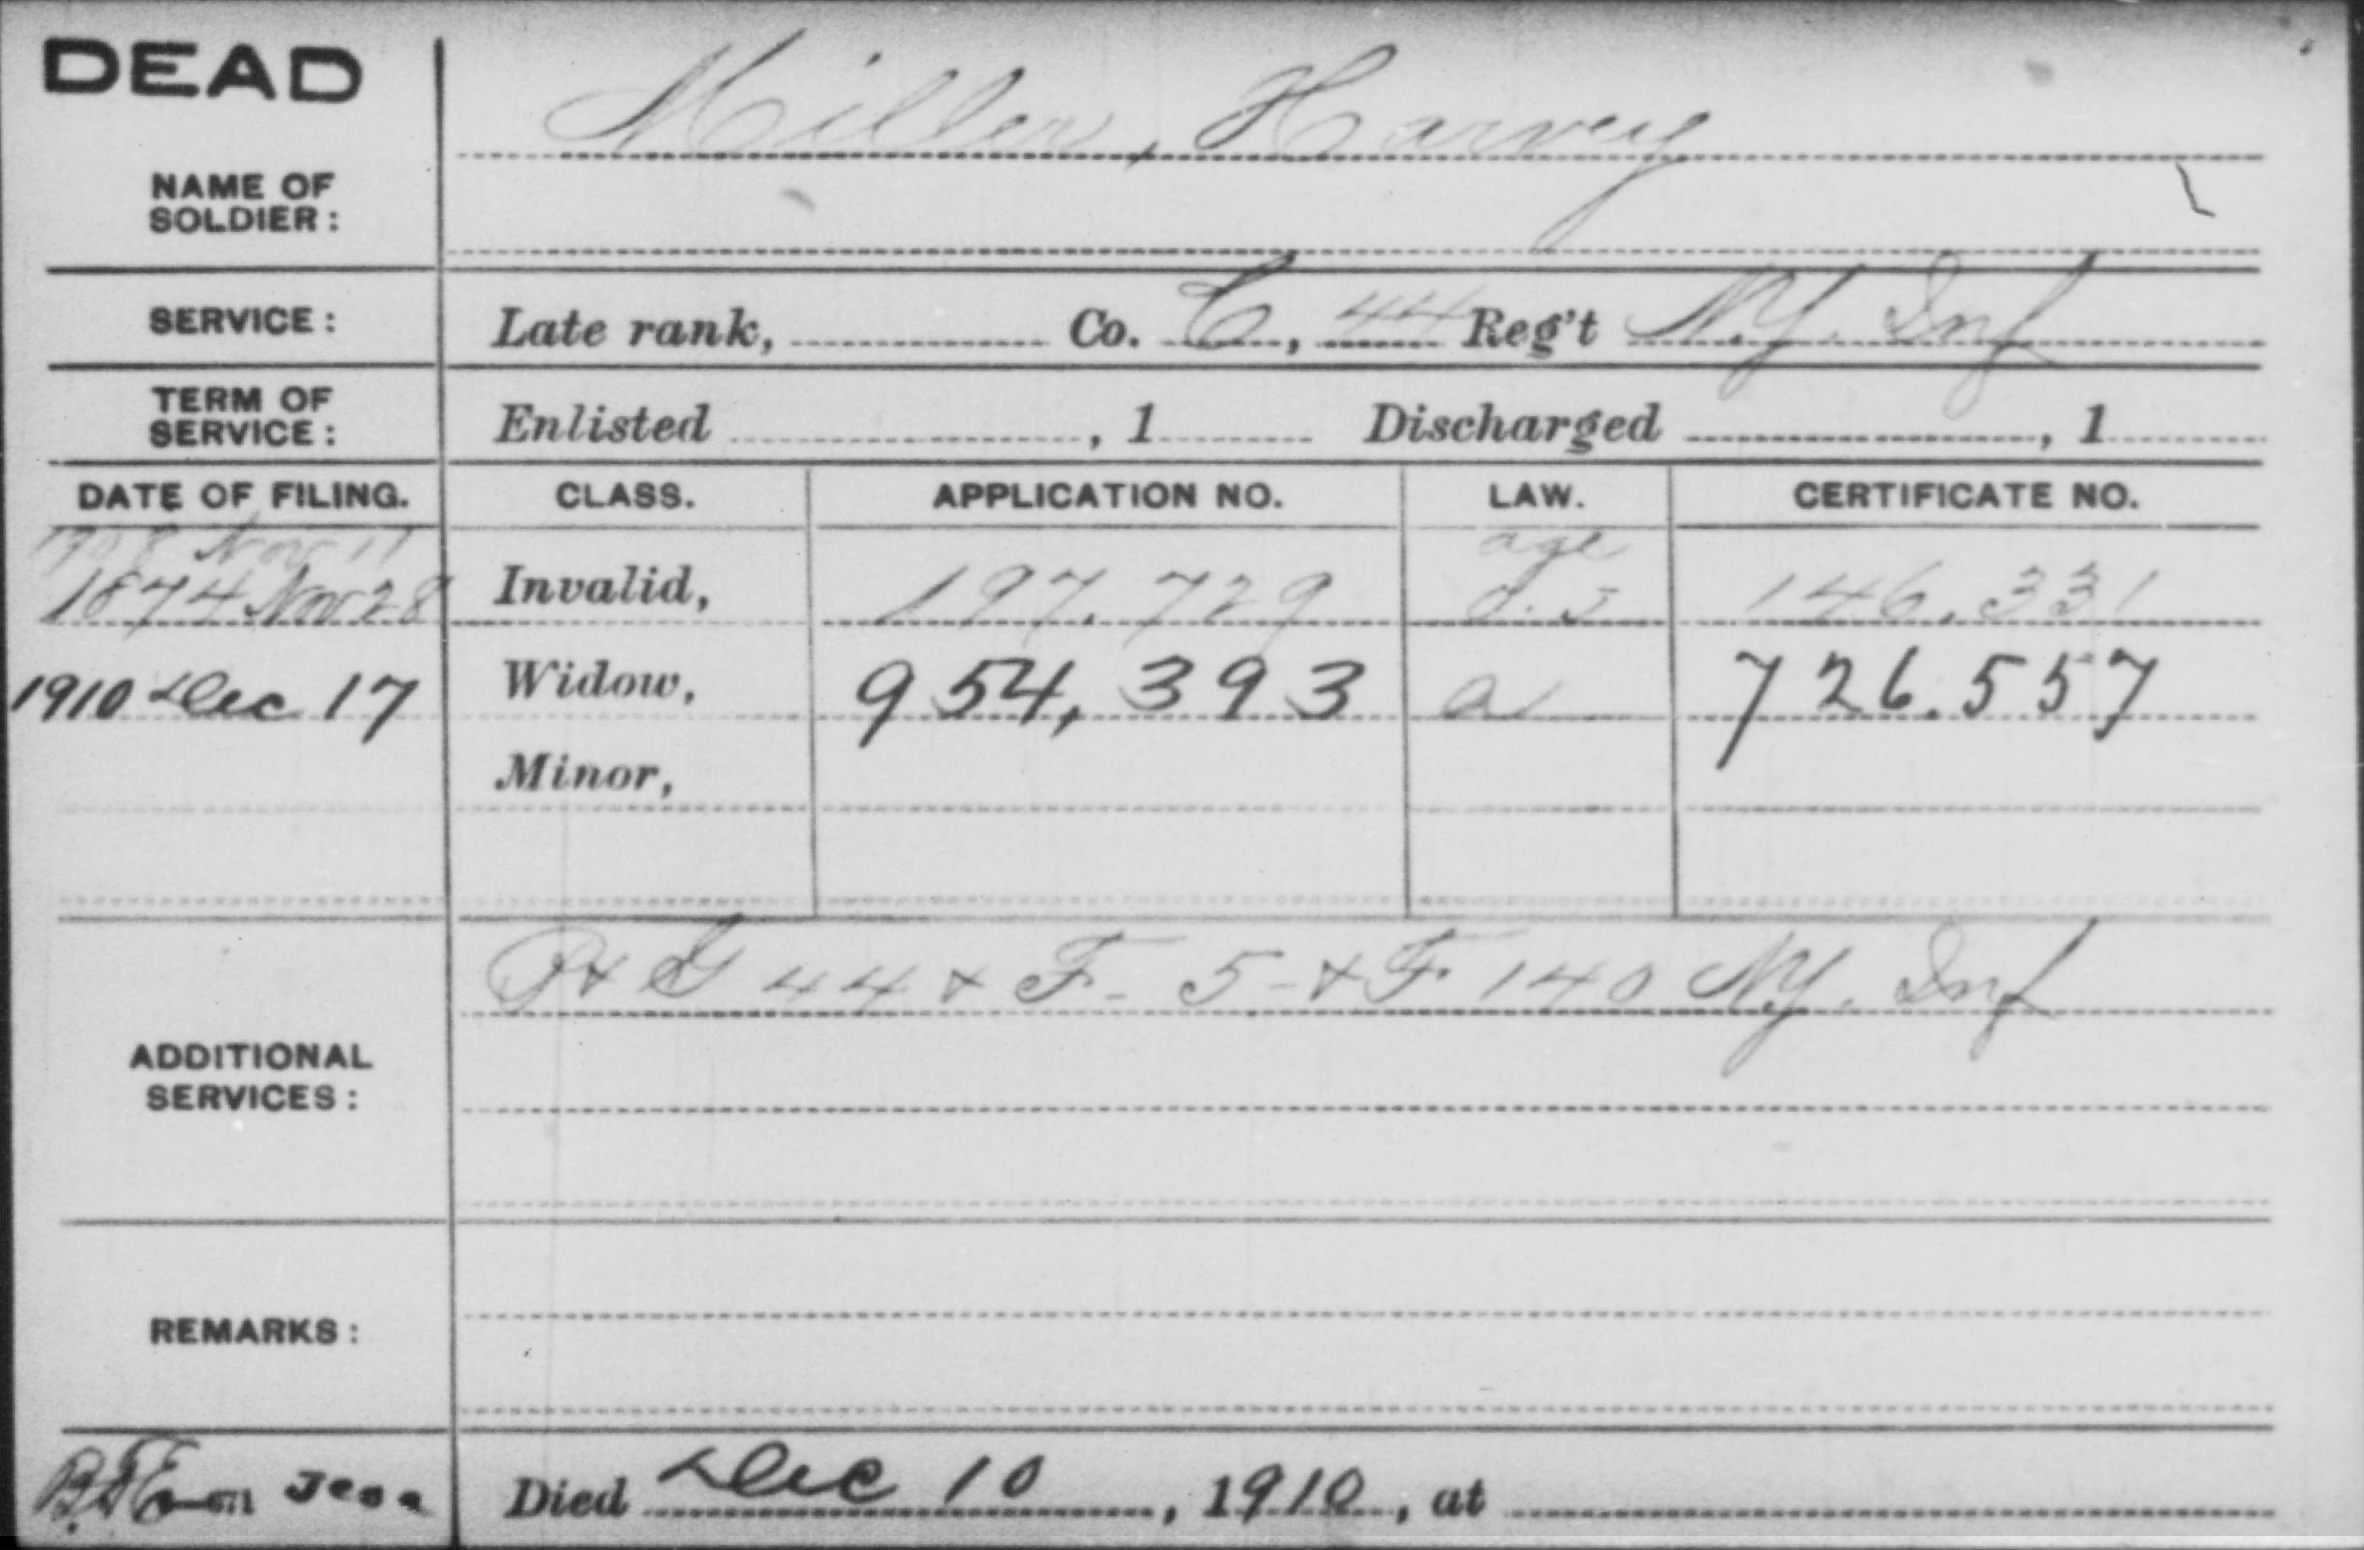 DEAD
Miller, Harvey
NAME OF
SOLDIER:
SERVICE: Late rank, Co. C, 44 Reg't N.Y. Inf
TERM OF
SERVICE: Enlisted , 1 Discharged , 1
DATE OF FILING. CLASS. APPLICATION NO. LAW. CERTIFICATE NO.
1908 Nov 11 age
1874 Nov 28 Invalid, 197.729 146.331
1910 Dec 17 Widow, 954,393 a 726.557
Minor,
44 & F- 5- & F 140 N.Y. Inf
ADDITIONAL
SERVICES:
REMARKS:
Died Dec 10, 1910, at